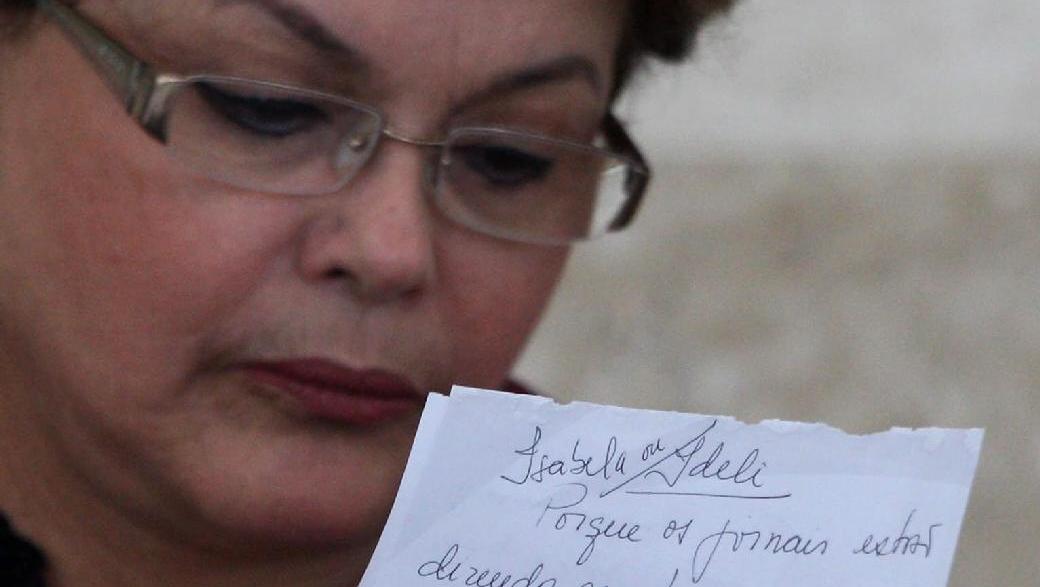 Isabela ou Ideli
Porque os jornais estão
dizendo